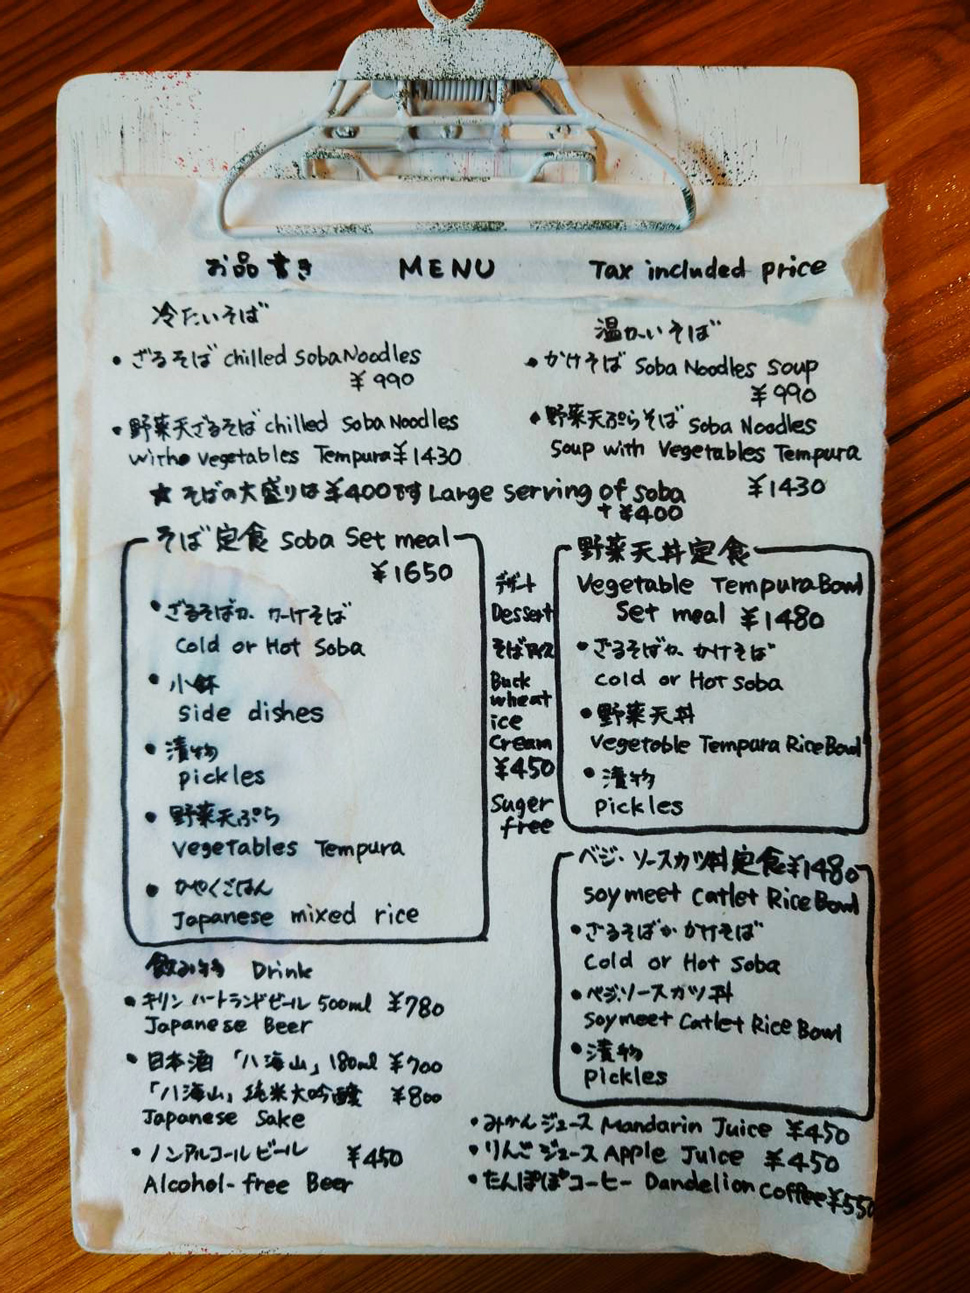 お品書き MENU Tax included price
冷たいそば
・ざるそば chilled Soba Noodles
¥990
・野菜天ざるそば chilled Soba Noodles
with vegetables Tempura ¥1430
温かいそば
・かけそば Soba Noodles Soup
¥990
・野菜天ぷらそば Soba Noodles
Soup with Vegetables Tempura
¥1430
★ そばの大盛りは¥400です Large Serving of soba
+¥400
そば定食 Soba Set meal
¥1650
・ざるそばか かけそば
Cold or Hot Soba
・小鉢
Side dishes
・漬物
pickles
・野菜天ぷら
Vegetables Tempura
・かやくごはん
Japanese mixed rice
デザート
Dessert
そばアイス
Buck
wheat
ice
Cream
¥450
Suger
free
野菜天丼定食
Vegetable Tempura Bowl
Set meal ¥1480
・ざるそばか かけそば
Cold or Hot Soba
・野菜天丼
Vegetable Tempura Rice Bowl
・漬物
Pickles
ベジ・ソースカツ丼定食¥1480
Soymeet Catlet Rice Bowl
・ざるそばか かけそば
Cold or Hot Soba
・ベジ・ソースカツ丼
Soymeet Catlet Rice Bowl
・漬物
Pickles
飲み物 Drink
・キリン ハートランドビール 500ml ¥780
Japanese Beer
・日本酒「八海山」180ml ¥700
「八海山」純米大吟醸 ¥800
Japanese Sake
・ノンアルコールビール ¥450
Alcohol-free Beer
・みかんジュース Mandarin Juice ¥450
・りんごジュース Apple Juice ¥450
・たんぽぽコーヒー Dandelion Coffee ¥550